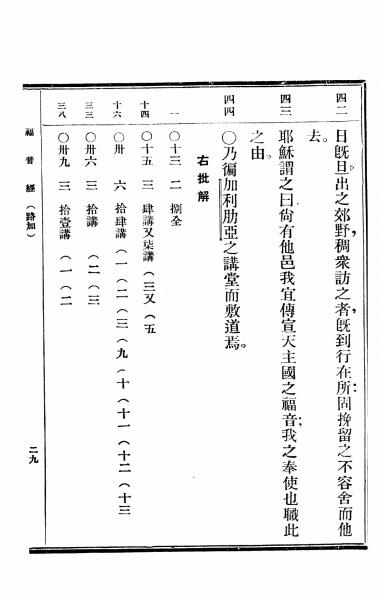 四二
日旣旦出之郊野,稠衆訪之者,旣到行在所:固挽留之不容舍而他
去。
四三
耶穌謂之曰尙有他邑我宜傳宣天主國之福音;我之奉使也職此
之由。
四四
〇乃徧加利肋亞之講堂而敷道焉。
右批解
一
〇十三 二 捌全
十四
〇十五 三 肆講又柒講(三又(五
十六
〇卅 六 拾肆講(一(二(三(九(十(十一(十二(十三
三三
〇卅六 三 拾講 (二(三
三八
〇卅九 三 拾壹講 (一(二
福音經(路加)
二九